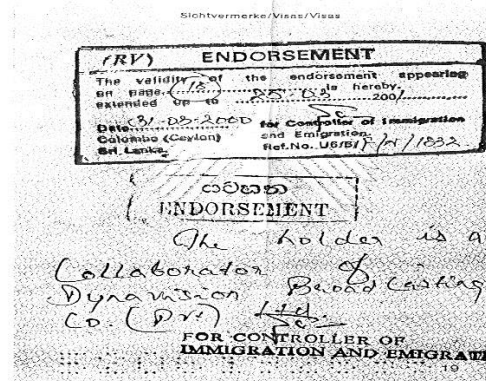 Sichtvermerke/Visas/Visas
(RV) ENDORSEMENT
The validity of the endorsement appearing
on page 18 is hereby
extended up to 25.03 2001
Date 31-03-2000 for Controller of Immigration
Colombo (Ceylon) and Emigration.
Sri Lanka. Ref.No. U6/5/ /1832
ENDORSEMENT
The holder is a
Collaborator of
Dynavision Broad Casting
CO. (Pvt) Ltd.
FOR CONTROLLER OF
IMMIGRATION AND EMIGRATI
19